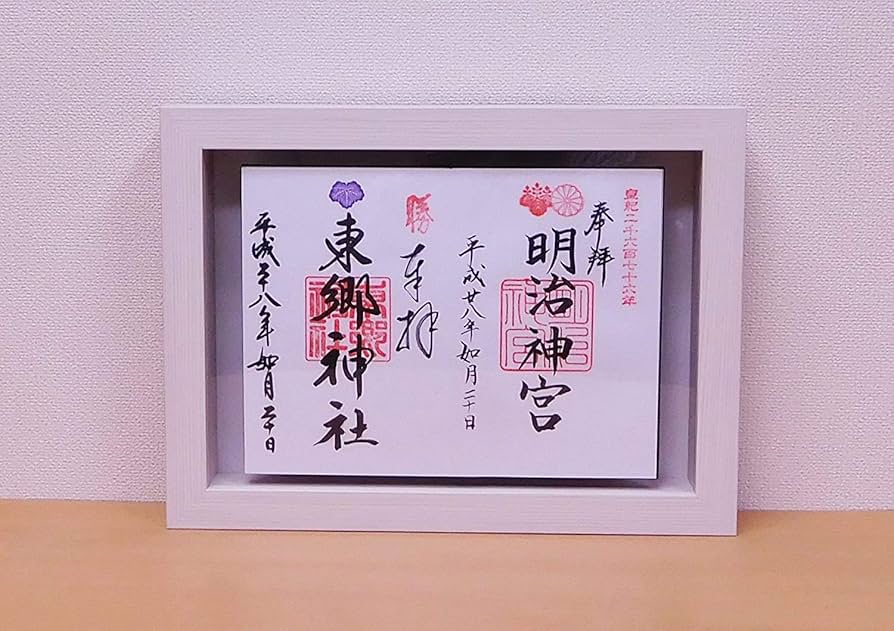 皇紀二千六百七十六年
奉拝
明治神宮
平成廿八年如月二十日
勝
奉拝
東郷神社
東郷神社
平成二十八年如月二十日